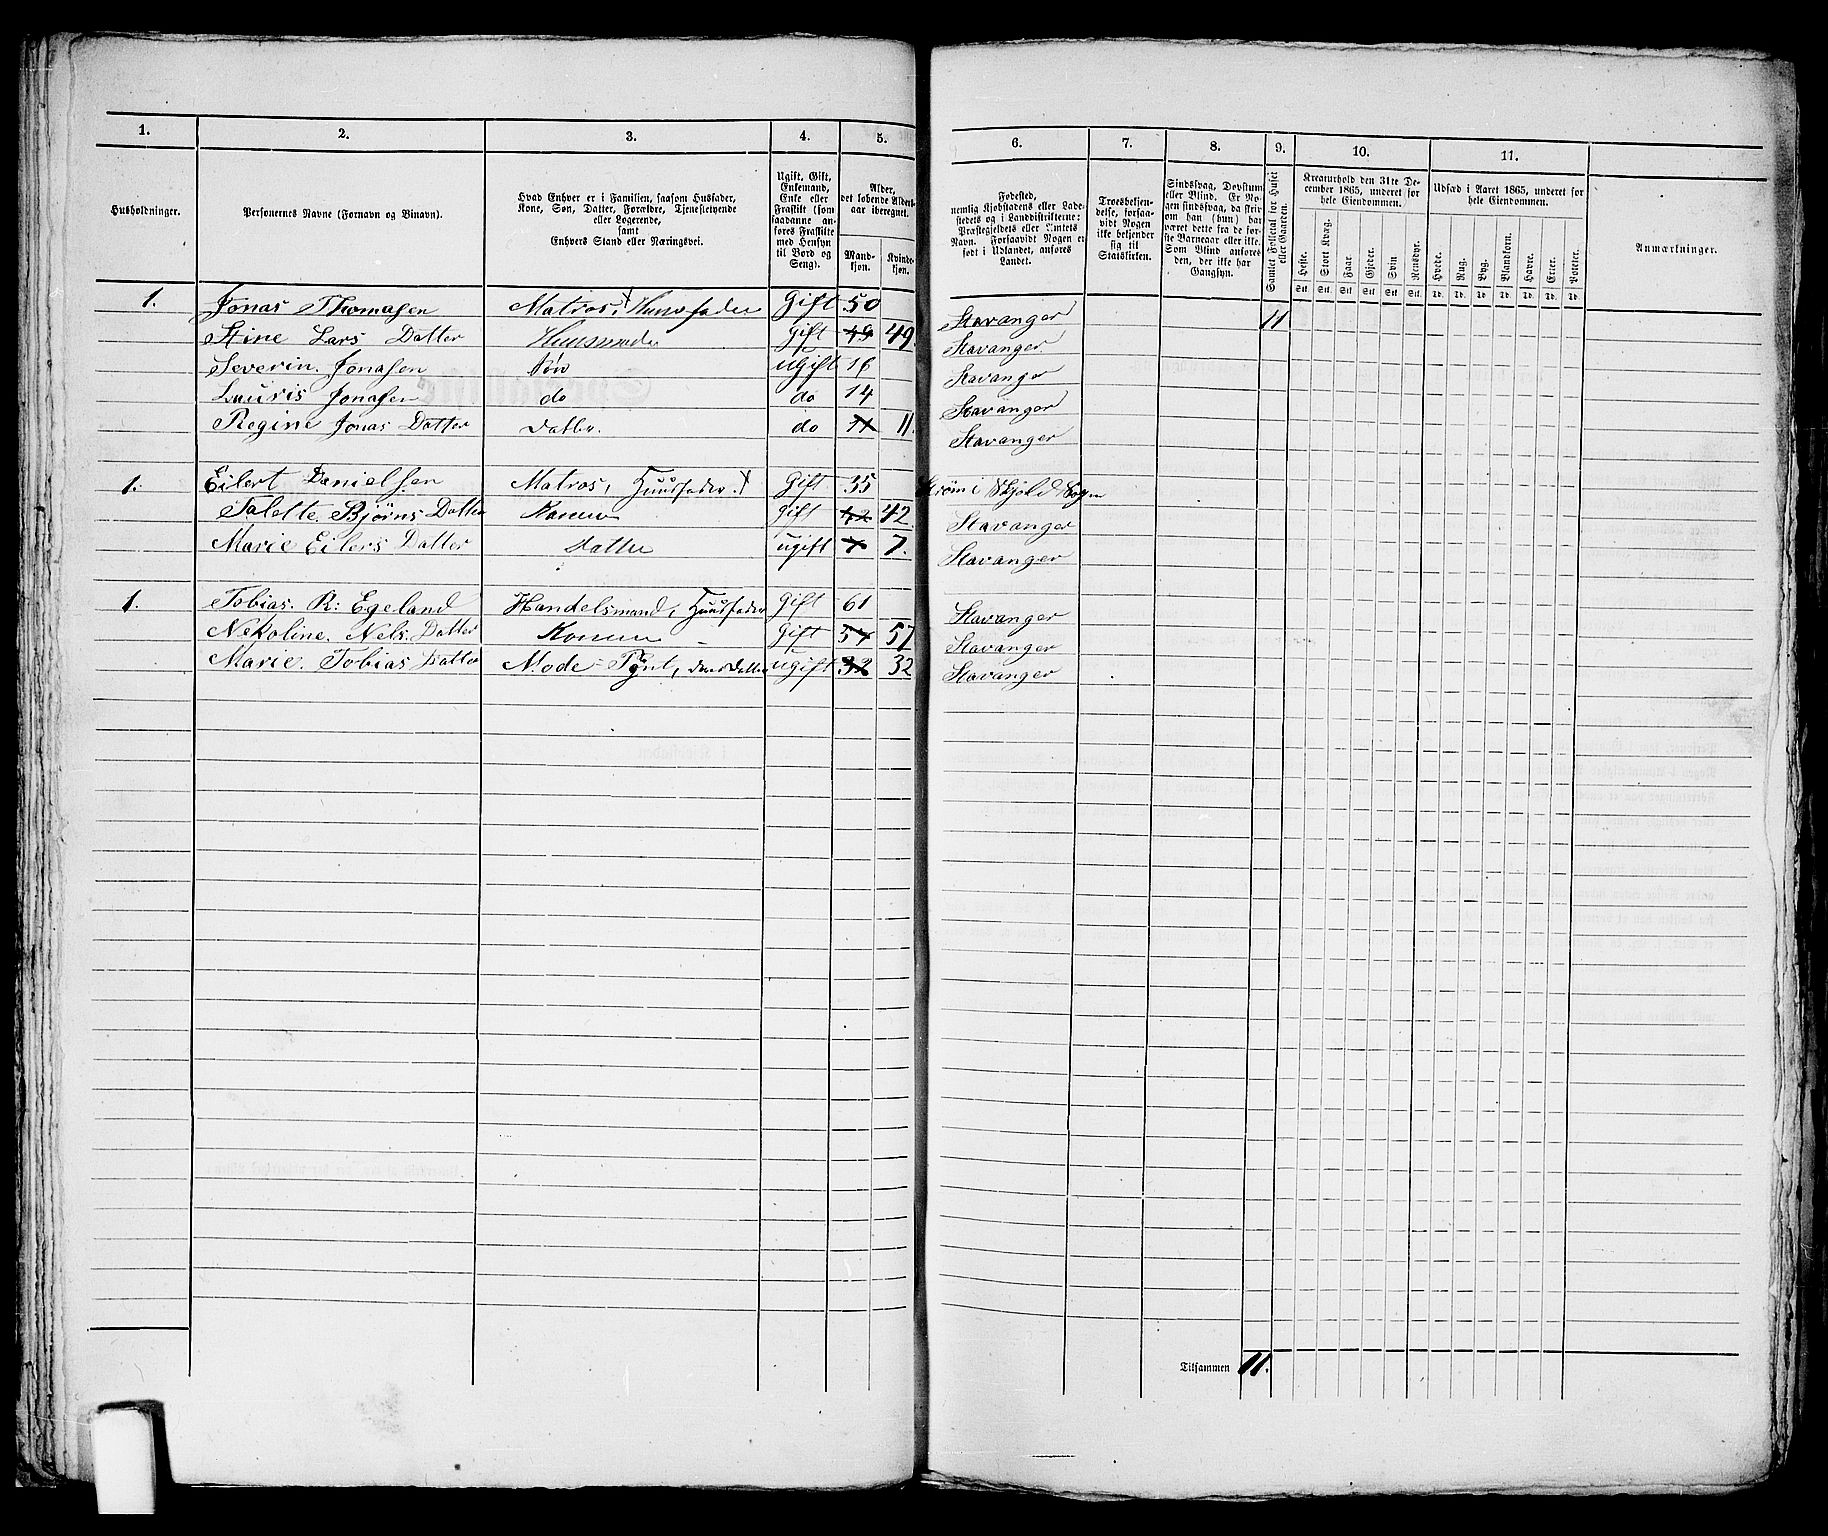 1. 2. 3. 4. 5. 6. 7. 8. 9. 10. 11.
Husholdninger.
Personernes Navne (Fornavn og Binavn).
Hvad Enhver er i Familien, saasom Husfader,
Kone, Søn, Datter, Forældre, Tjenestetyende
eller Logerende,
samt
Enhvers Stand eller Næringsvei.
Ugift, Gift,
Enkemand,
Enke eller
Fraskilt (som
saadanne an-
føres Fraskilte
med Hensyn
til Bord og
Seng).
Alder,
det løbende Alders-
aar iberegnet.
Mand-
kjøn.
Kvinde-
kjøn.
Fødested,
nemlig Kjøbstadens eller Lade-
stedets og i Landdistrikterne:
Præstegjeldets eller Sognets
Navn. Forsaavidt Nogen er
født i Udlandet, anføres
Landet.
Troesbekjen-
delse, forsaa-
vidt Nogen
ikke bekjender
sig til
Statskirken.
Sindssvag, Døvstum
eller Blind. Er No-
gen sindssvag, da skriv
om han (hun) har
været dette fra de før-
ste Barneaar eller ikke.
Som Blind anføres
den, der ikke har
Gangsyn.
Samlet Folketal for Huset
eller Gaarden.
Kreaturhold den 31te De-
cember 1865, underet for
hele Eiendommen.
Heste. Stort Kvæg. Faar. Gjeder. Svin. Rensdyr.
Stk. Stk. Stk. Stk. Stk. Stk.
Udsæd i Aaret 1865, underet for
hele Eiendommen.
Hvede. Rug. Byg. Blandkorn. Havre. Erter. Poteter.
Td. Td. Td. Td. Td. Td. Td.
Anmærkninger.
1. Jonas Thomasen Matros, Huusfader Gift 50 Stavanger 11
Stine Lars Datter Huusmoder Gift 49 49. Stavanger
Severin. Jonasen Søn Ugift 16 Stavanger
Lauris Jonasen do do 14 Stavanger
Regine Jonas Datter Datter. do 11 11. Stavanger
1. Eilert Danielsen Matros, Huusfader Gift 35 Strøm i Skjold Sogn
Talette. Bjørns Datter Konen Gift 42 42. Stavanger
Marie Eilers Datter Datter ugift 7 7. Stavanger
1. Tobias. R: Egeland Handelsmand, Huusfader Gift 61 Stavanger
Nekoline. Nels. Datter Konen Gift 57 57 Stavanger
Marie. Tobias Datter Mode-Pynt, deres Datter ugift 32 32 Stavanger
Tilsammen 11.